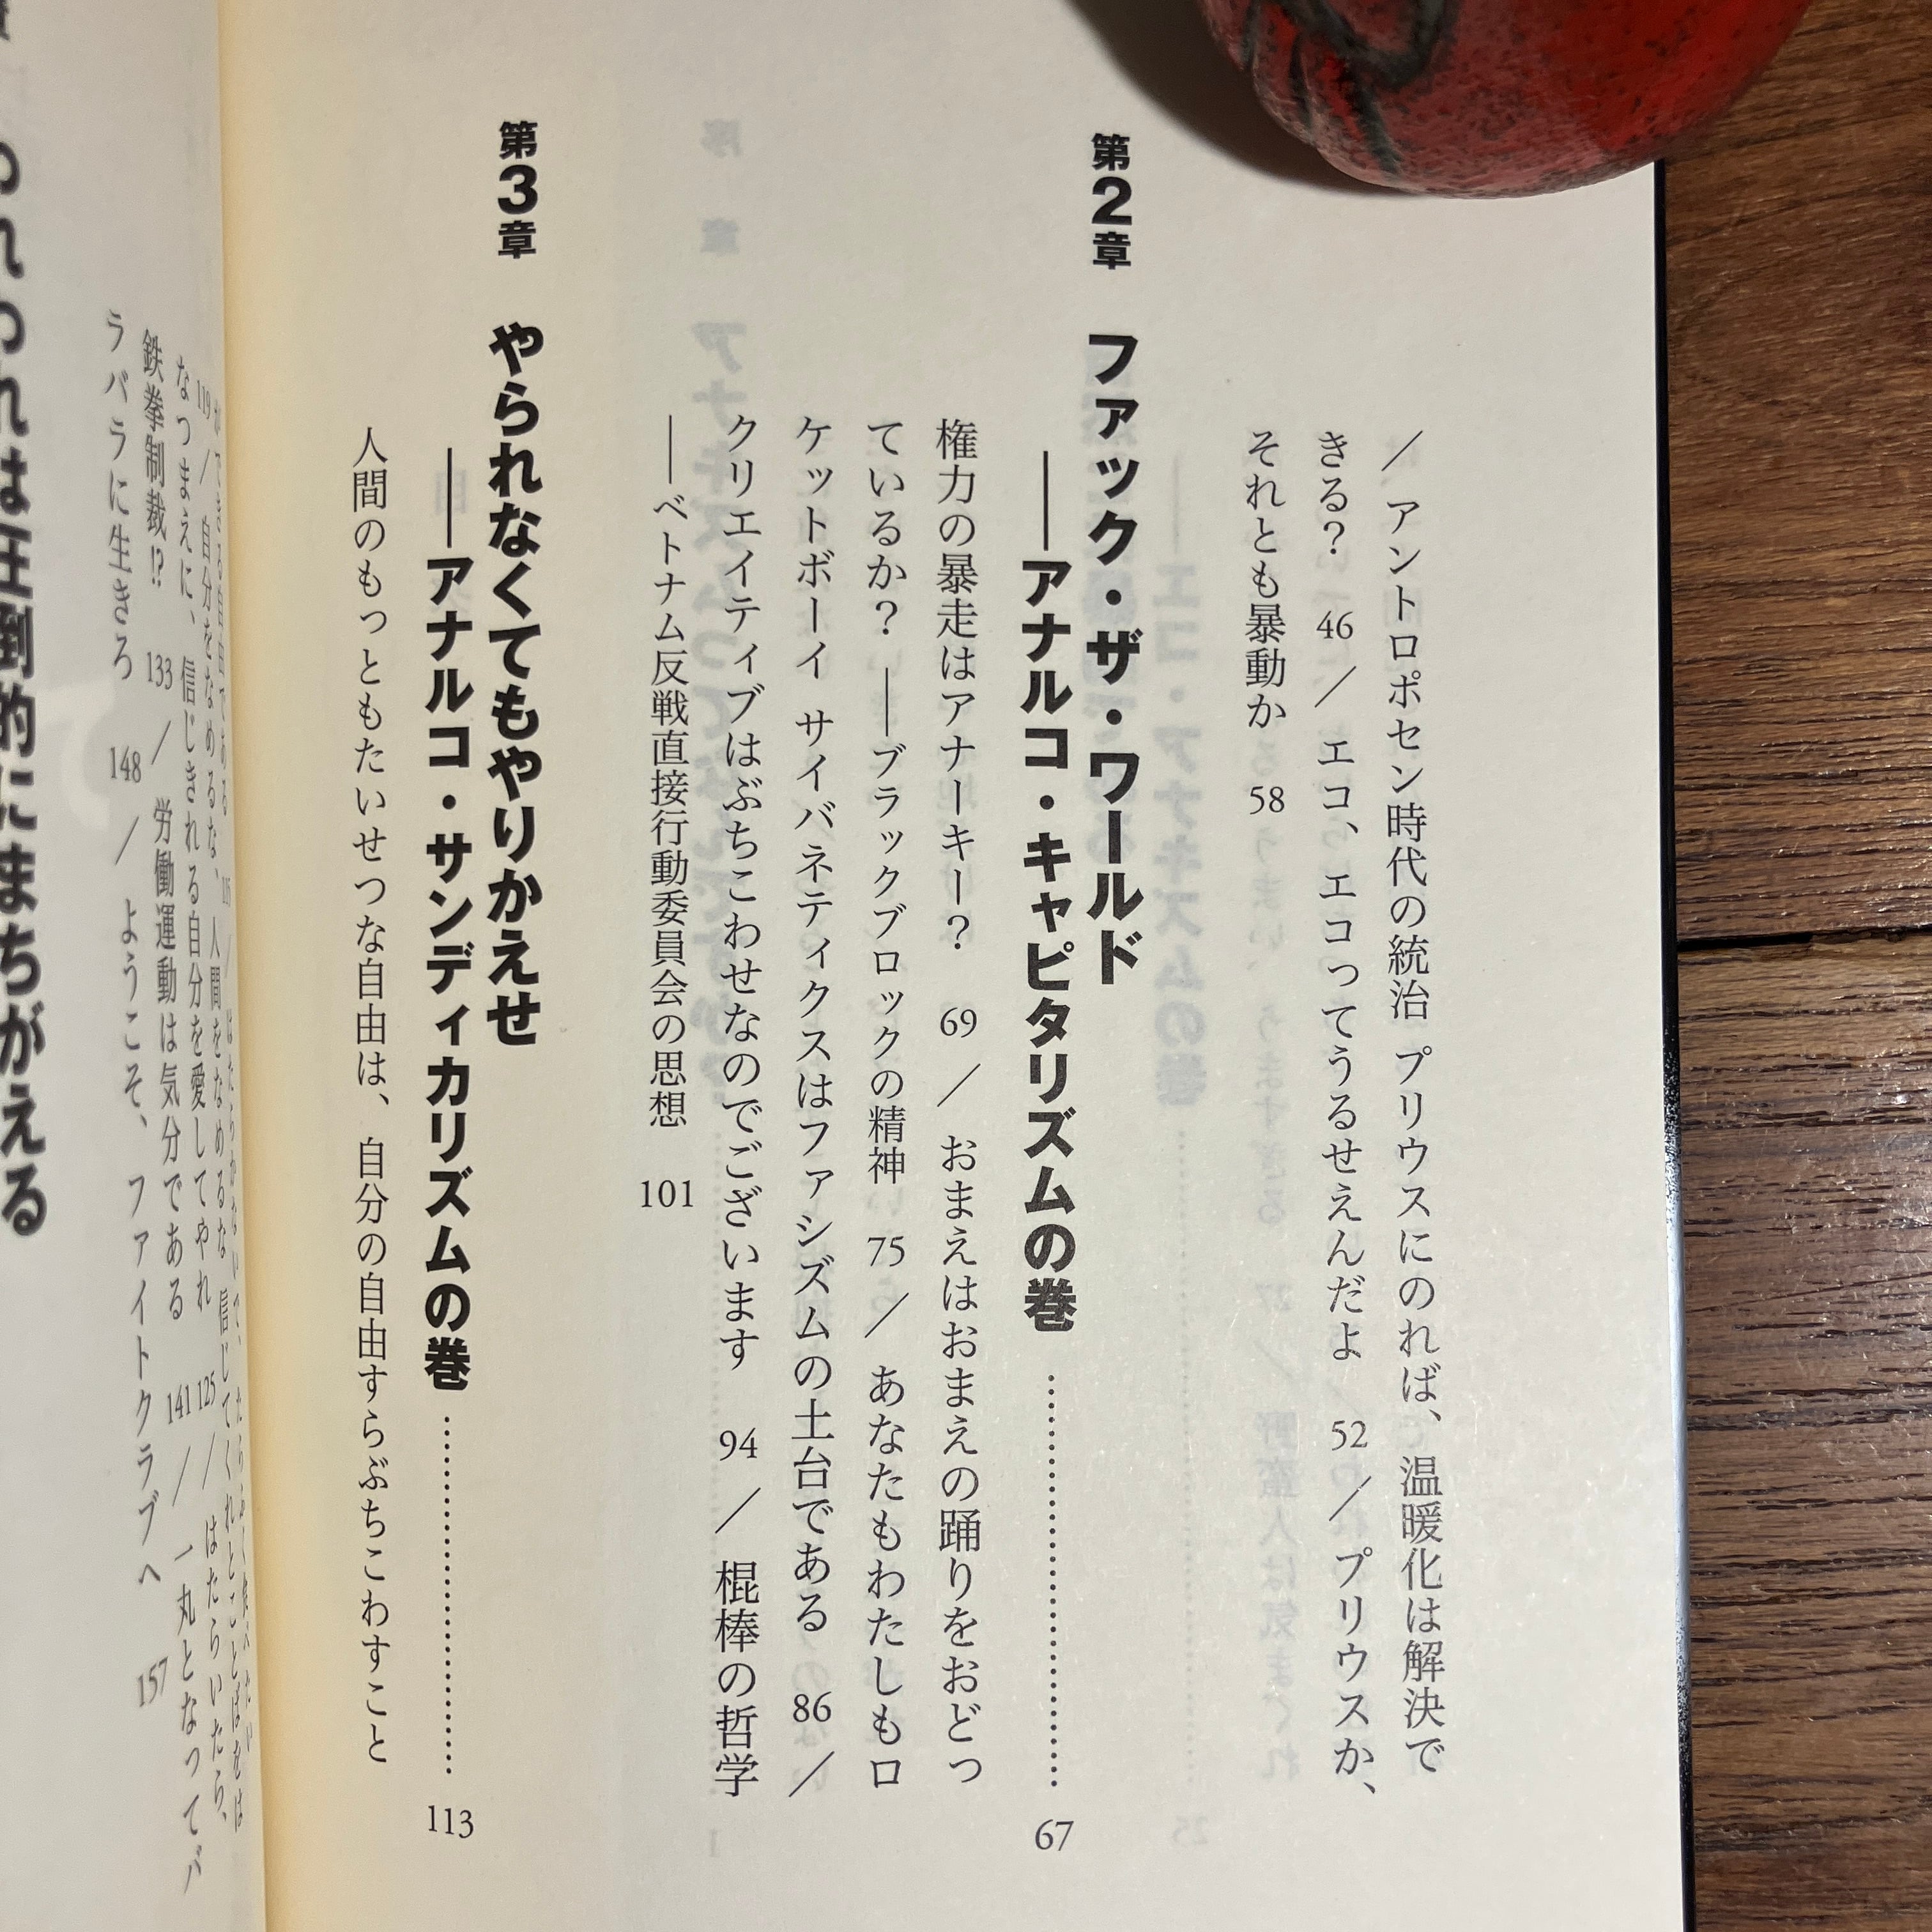 ／アントロポセン時代の統治 プリウスにのれば、温暖化は解決で
きる？ 46／エコ、エコってうるせえんだよ 52／プリウスか、
それとも暴動か 58
第2章 ファック・ザ・ワールド
――アナルコ・キャピタリズムの巻………………67
権力の暴走はアナーキー？ 69／おまえはおまえの踊りをおどっ
ているか？――ブラックブロックの精神 75／あなたもわたしもロ
ケットボーイ サイバネティクスはファシズムの土台である 86／
クリエイティブはぶちこわせなのでございます 94／棍棒の哲学
――ベトナム反戦直接行動委員会の思想 101
第3章 やられなくてもやりかえせ
――アナルコ・サンディカリズムの巻………………113
人間のもっともたいせつな自由は、自分の自由すらぶちこわすこと
119／自分をなめるな、人間をなめるな 信じてくれとことばをは
なつまえに、信じきれる自分を愛してやれ 125／はたらいたら、
鉄拳制裁!? 133／労働運動は気分である 141／一丸となってバ
ラバラに生きろ 148／ようこそ、ファイトクラブへ 157
われわれは圧倒的にまちがえる